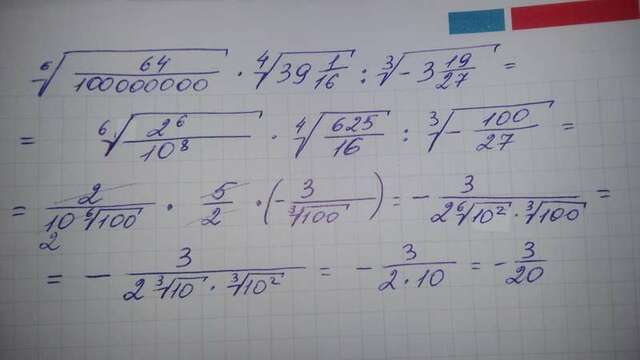 ⁶√(64/100000000) · ⁴√(39 1/16) : ³√(-3 19/27) =
= ⁶√(2⁶/10⁸) · ⁴√(625/16) : ³√(-100/27) =
= 2/(10 ⁶√100) · 5/2 · (-3/³√100) = -3/(2 ⁶√10² · ³√100) =
2
= -3/(2 ³√10 · ³√10²) = -3/(2·10) = -3/20